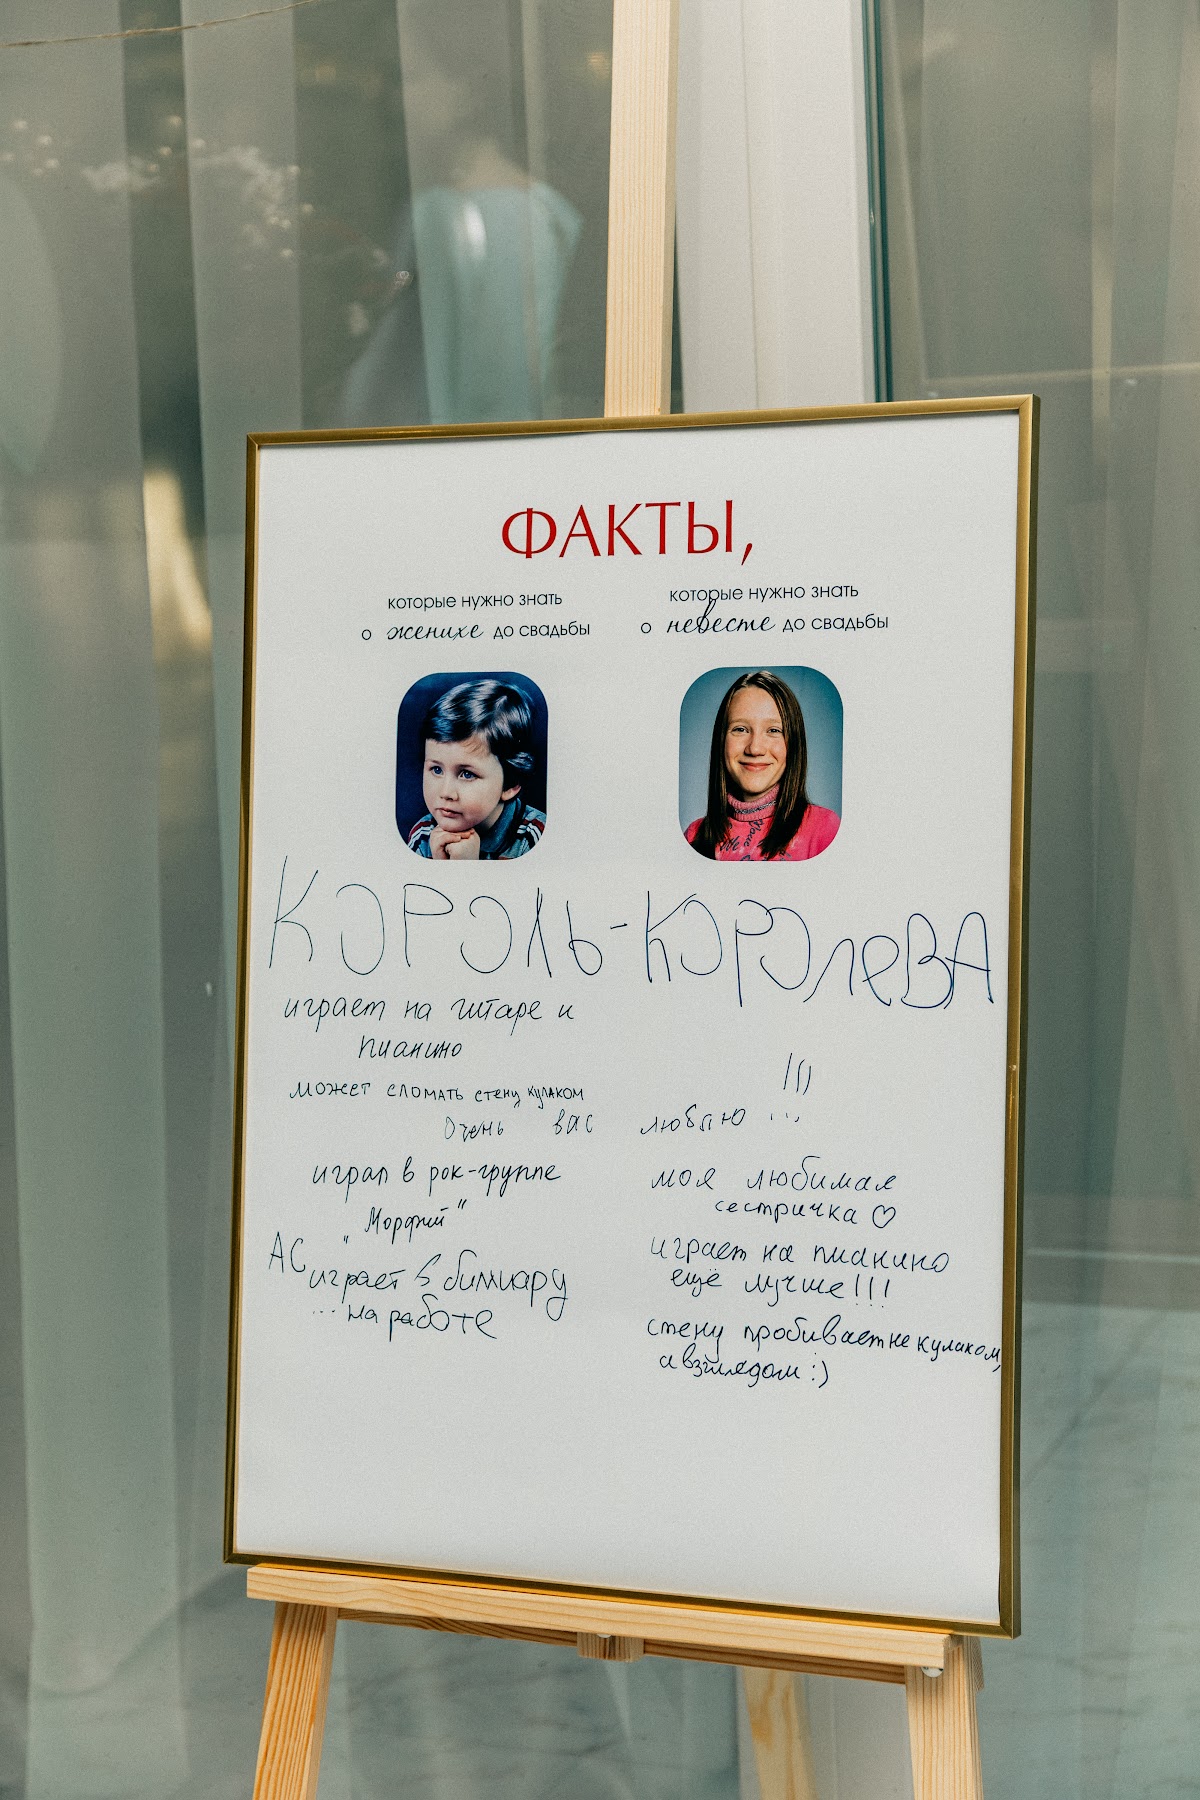 ФАКТЫ,
которые нужно знать
о женихе до свадьбы
которые нужно знать
о невесте до свадьбы
КОРОЛЬ-КОРОЛЕВА
играет на гитаре и
пианино
может сломать стену кулаком
Очень вас люблю !!!
играл в рок-группе
"Морфий"
АС играет в бильярд
... на работе
моя любимая
сестричка ♡
играет на пианино
ещё лучше!!!
стену пробивает не кулаком,
а взглядом :)